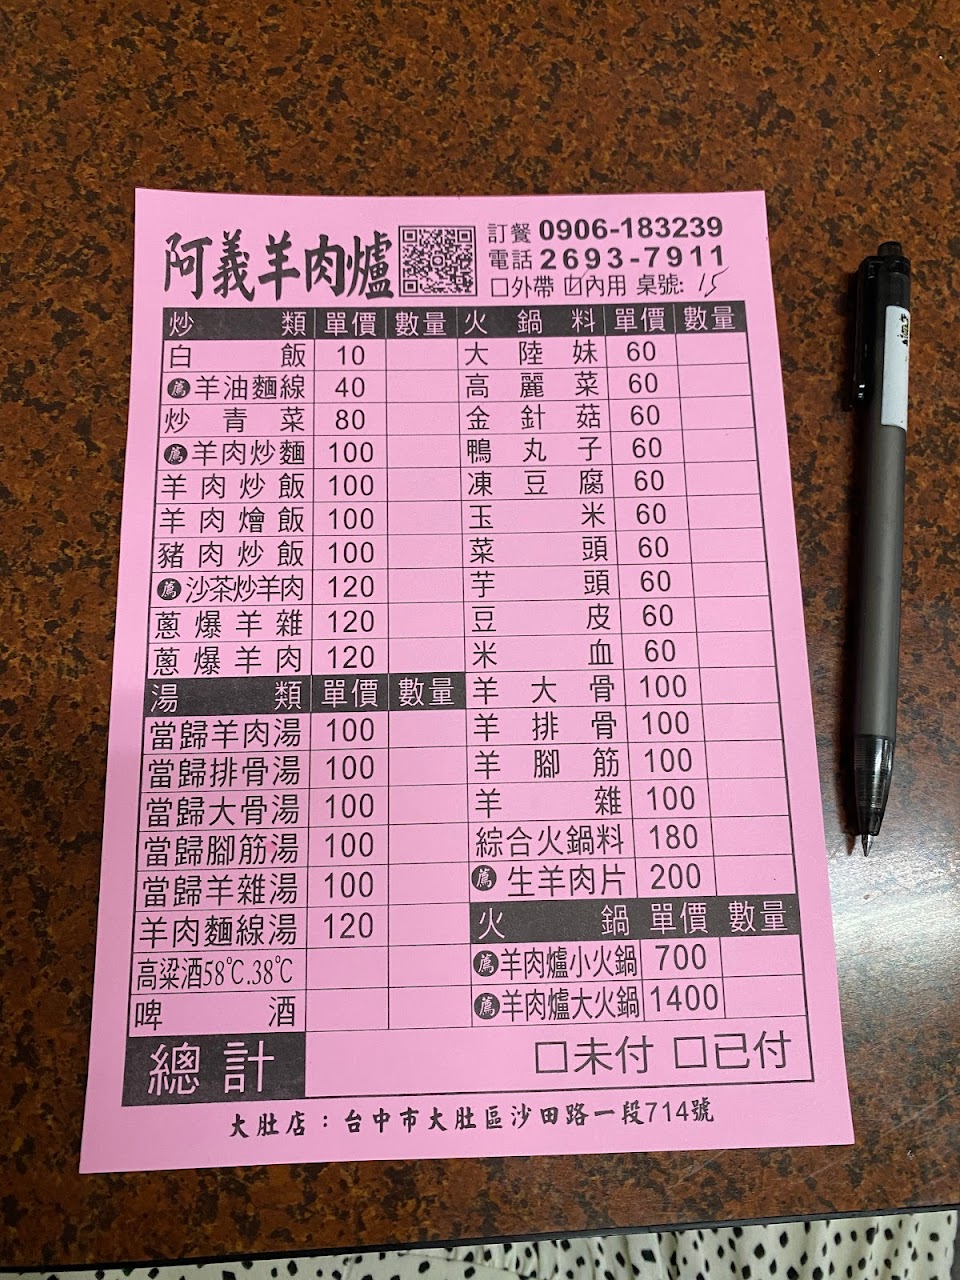 阿義羊肉爐
訂餐 0906-183239
電話 2693-7911
□外帶 ☑內用 桌號: 15
炒類 單價 數量
白飯 10
薦 羊油麵線 40
炒青菜 80
薦 羊肉炒麵 100
羊肉炒飯 100
羊肉燴飯 100
豬肉炒飯 100
薦 沙茶炒羊肉 120
蔥爆羊雜 120
蔥爆羊肉 120
湯類 單價 數量
當歸羊肉湯 100
當歸排骨湯 100
當歸大骨湯 100
當歸腳筋湯 100
當歸羊雜湯 100
羊肉麵線湯 120
高粱酒58℃.38℃
啤酒
火鍋料 單價 數量
大陸妹 60
高麗菜 60
金針菇 60
鴨丸子 60
凍豆腐 60
玉米 60
菜頭 60
芋頭 60
豆皮 60
米血 60
羊大骨 100
羊排骨 100
羊腳筋 100
羊雜 100
綜合火鍋料 180
薦 生羊肉片 200
火鍋 單價 數量
薦 羊肉爐小火鍋 700
薦 羊肉爐大火鍋 1400
總計 □未付 □已付
大肚店：台中市大肚區沙田路一段714號